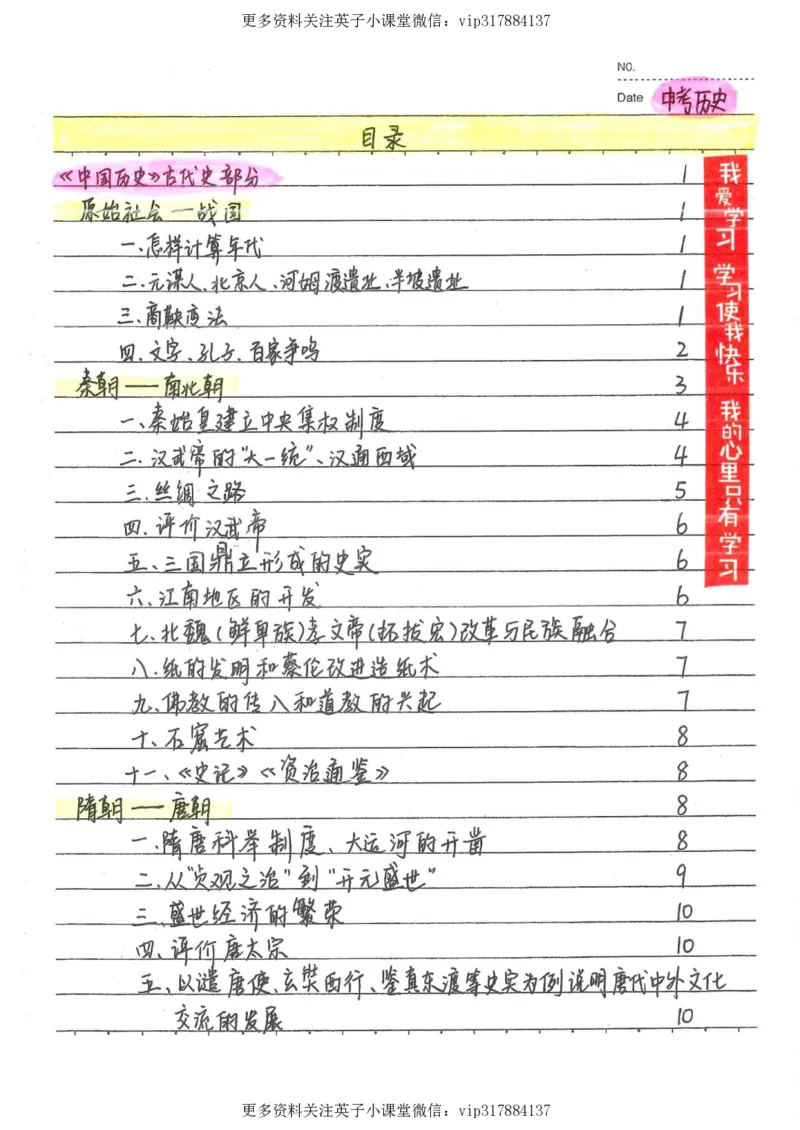 更多资料关注英子小课堂微信：vip317884137
NO.
Date 中考历史
目录
《中国历史》古代史部分 1
原始社会—战国 1
一、怎样计算年代 1
二、元谋人、北京人、河姆渡遗址、半坡遗址 1
三、商鞅变法 1
四、文字、孔子、百家争鸣 2
秦朝——南北朝 3
一、秦始皇建立中央集权制度 4
二、汉武帝的“大一统”、汉通西域 4
三、丝绸之路 5
四、评价汉武帝 6
五、三国鼎立形成的史实 6
六、江南地区的开发 6
七、北魏(鲜卑族)孝文帝(拓拔宏)改革与民族融合 7
八、纸的发明和蔡伦改进造纸术 7
九、佛教的传入和道教的兴起 7
十、石窟艺术 8
十一、《史记》《资治通鉴》 8
隋朝——唐朝 8
一、隋唐科举制度、大运河的开凿 8
二、从“贞观之治”到“开元盛世” 9
三、盛世经济的繁荣 10
四、评价唐太宗 10
五、以遣唐使、玄奘西行、鉴真东渡等史实为例说明唐代中外文化
交流的发展 10
我爱学习 学习使我快乐 我的心里只有学习
更多资料关注英子小课堂微信：vip317884137